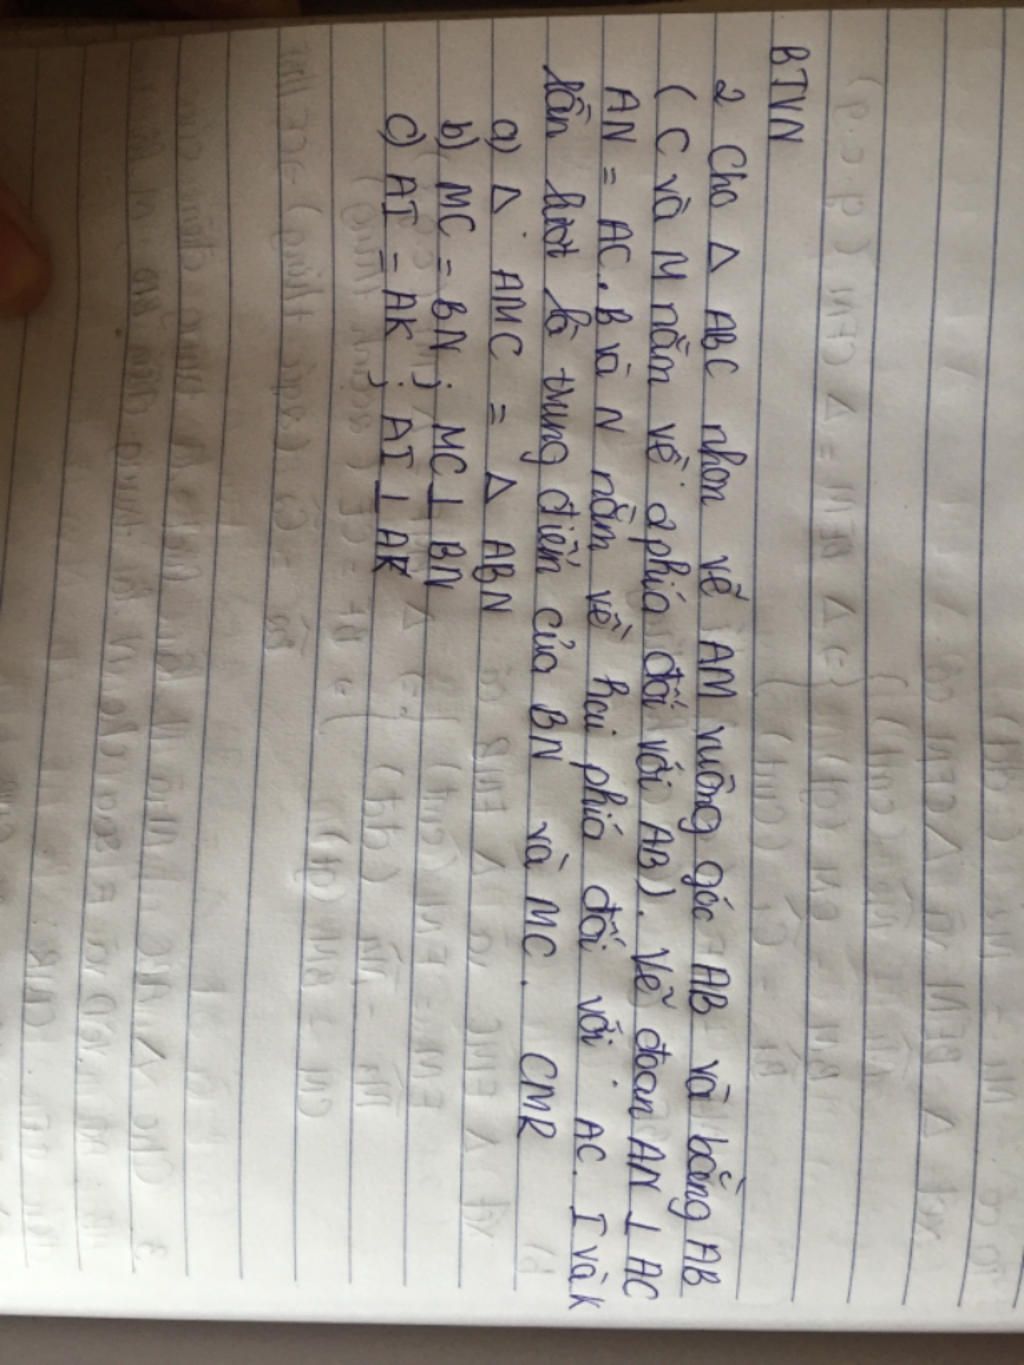 BTVN
2 Cho Δ ABC nhọn vẽ AM vuông góc AB và bằng AB
( C và M nằm về 2 phía đối với AB). Vẽ đoạn AN ⊥ AC
AN = AC. B và N nằm về hai phía đối với AC. I và K
lần lượt là trung điểm của BN và MC. CMR
a) Δ AMC = Δ ABN
b) MC = BN ; MC ⊥ BN
c) AI = AK ; AI ⊥ AK